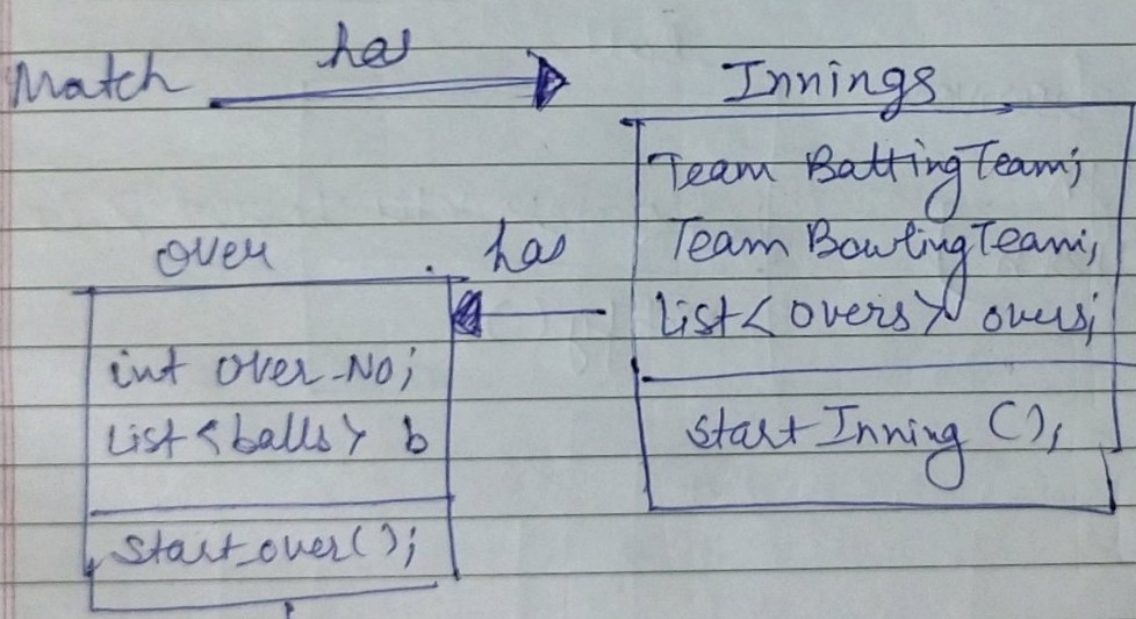 has
Match
Innings
Team BattingTeam;
Team BowlingTeam;
List<overs> overs;
startInning ();
has
over
int over-No;
List<balls> b
start_over();